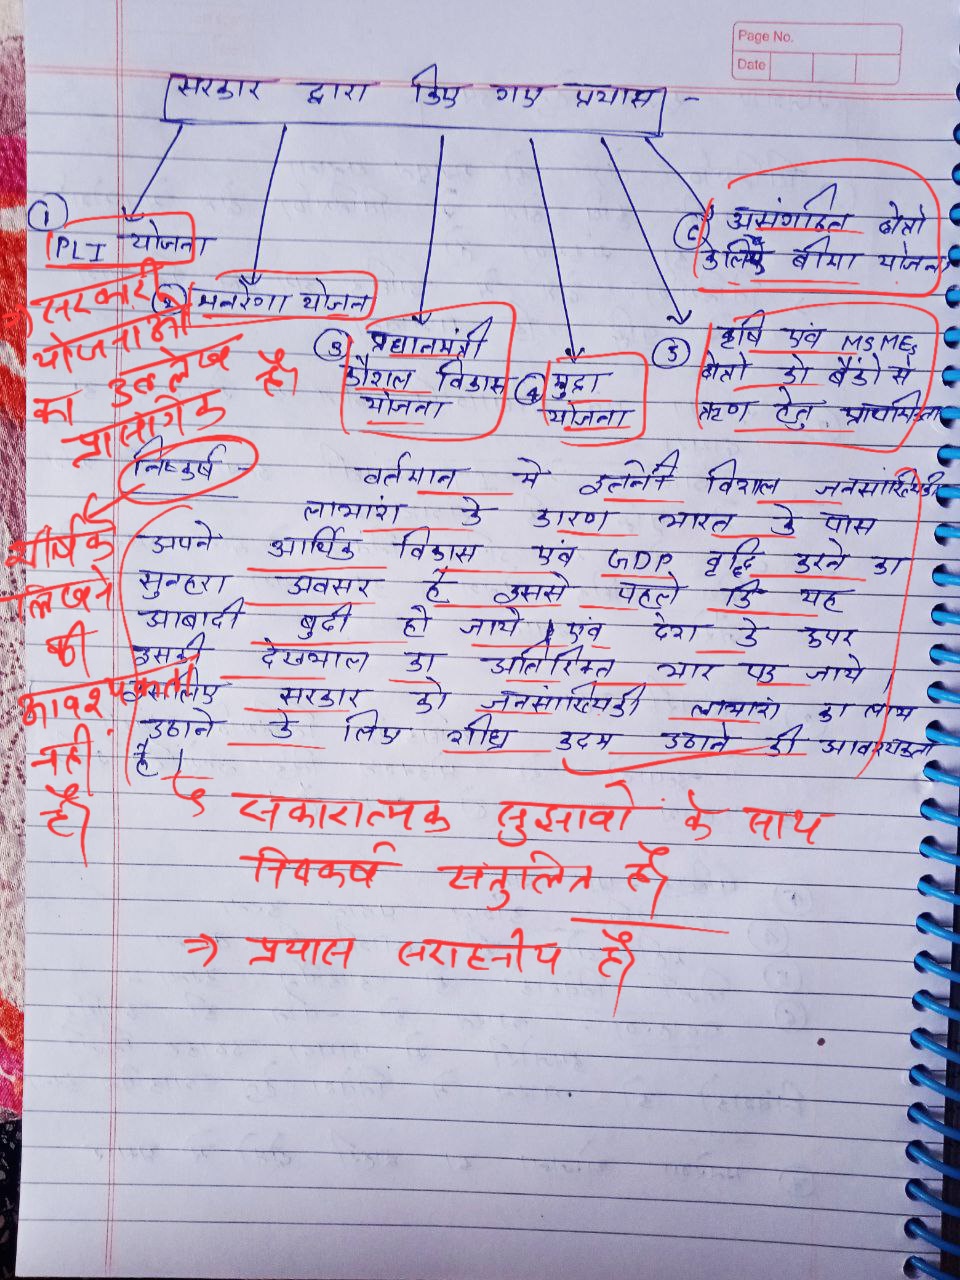 Page No.
Date
सरकार द्वारा किए गए प्रयास -
① PLI योजना
② मनरेगा योजन
③ प्रधानमंत्री
कौशल विकास
योजना
④ मुद्रा
योजना
⑤ कृषि एवं MSMEs
क्षेत्रो को बैंको से
ऋण हेतु प्राथमिकता
असंगठित क्षेत्रो
के लिए बीमा योजन
सरकारी
योजनाओं
का उल्लेख
प्रासांगिक है।
निष्कर्ष - वर्तमान में इतनेनी विशाल जनसांख्यिकी
लाभांश के कारण भारत के पास
अपने आर्थिक विकास एवं GDP वृद्धि करने का
सुनहरा अवसर है इससे पहले कि यह
आबादी बुढी हो जाये, एवं देश के ऊपर
इसकी देखभाल का अतिरिक्त भार पड जाये,
इसलिए सरकार को जनसांख्यिकी लाभांश का लाभ
उठाने के लिए शीघ्र कदम उठाने की आवश्यकता
है।
शीर्षक
लिखने
की
आवश्यकता
नहीं
है।
सकारात्मक सुझावों के साथ
निष्कर्ष संतुलित है।
⇒ प्रयास सराहनीय है।